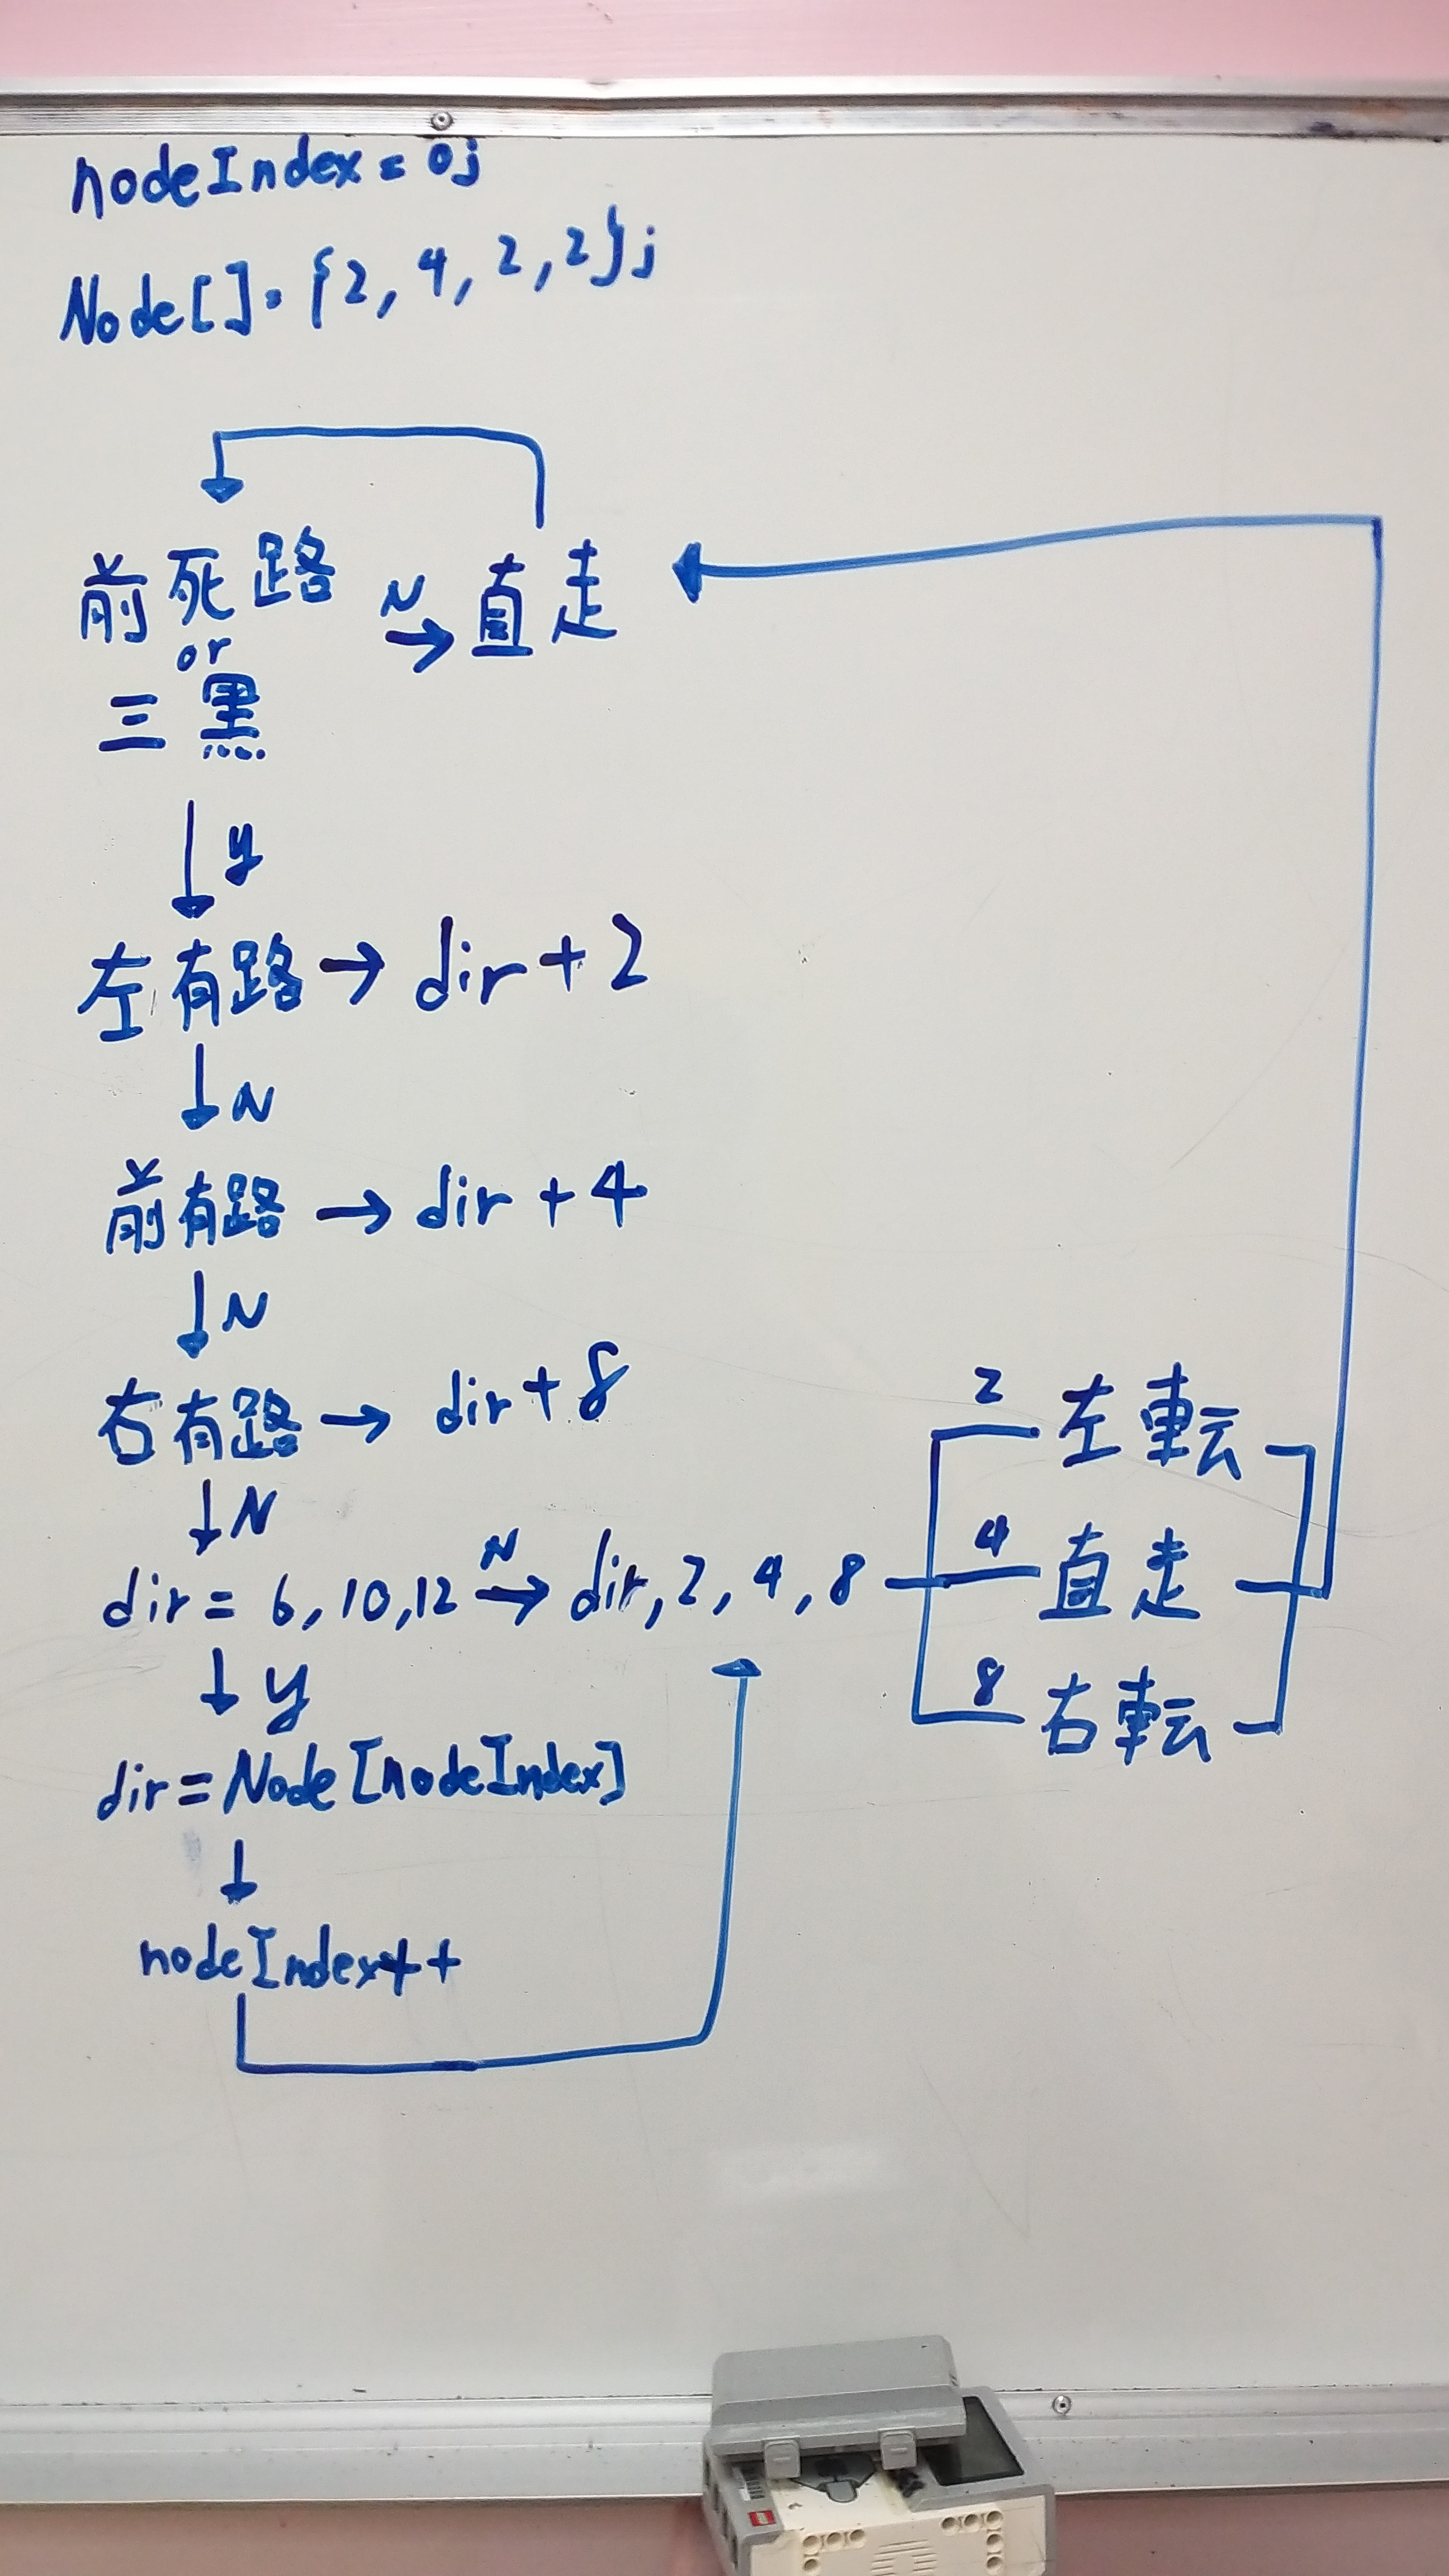 nodeIndex = 0;
Node[] = {2, 4, 2, 2};
前死路 N → 直走
or
三黑
↓ y
左有路 → dir + 2
↓ N
前有路 → dir + 4
↓ N
右有路 → dir + 8
↓ N
dir = 6, 10, 12 N → dir, 2, 4, 8
2 左転
4 直走
8 右転
↓ y
dir = Node[nodeIndex]
↓
nodeIndex++
LEGO